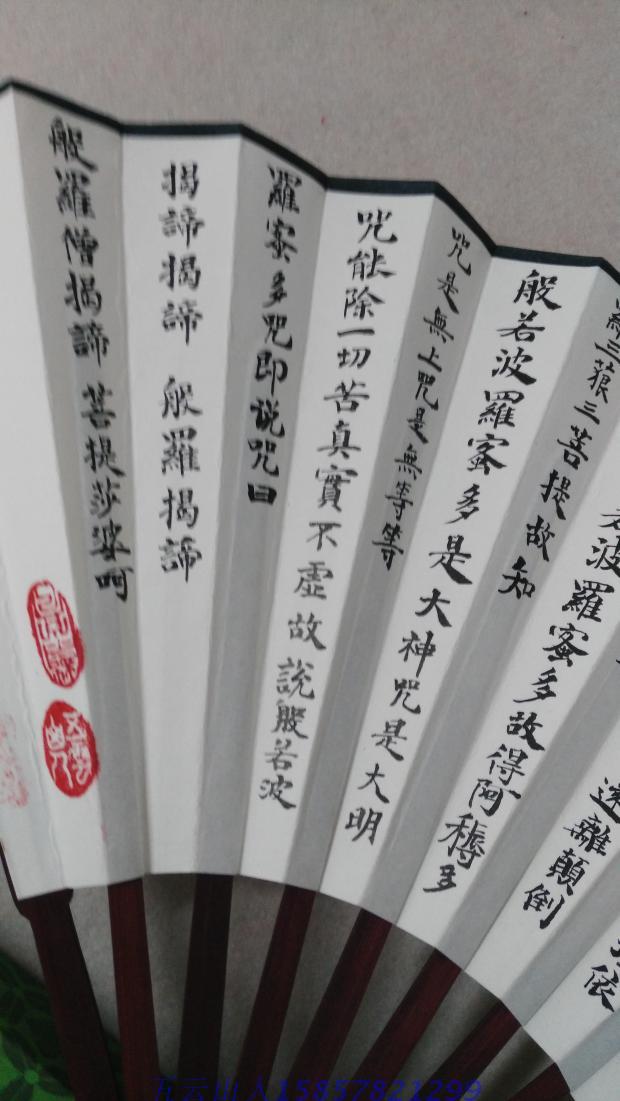 依
遠離顛倒
波羅蜜多故得阿耨多
羅三藐三菩提故知
般若波羅蜜多是大神咒是大明
咒是無上咒是無等等
咒能除一切苦真實不虛故説般若波
羅蜜多咒即说咒曰
揭諦揭諦 般羅揭諦
般羅僧揭諦 菩提莎婆呵
五雲山人
五云山人15857821299